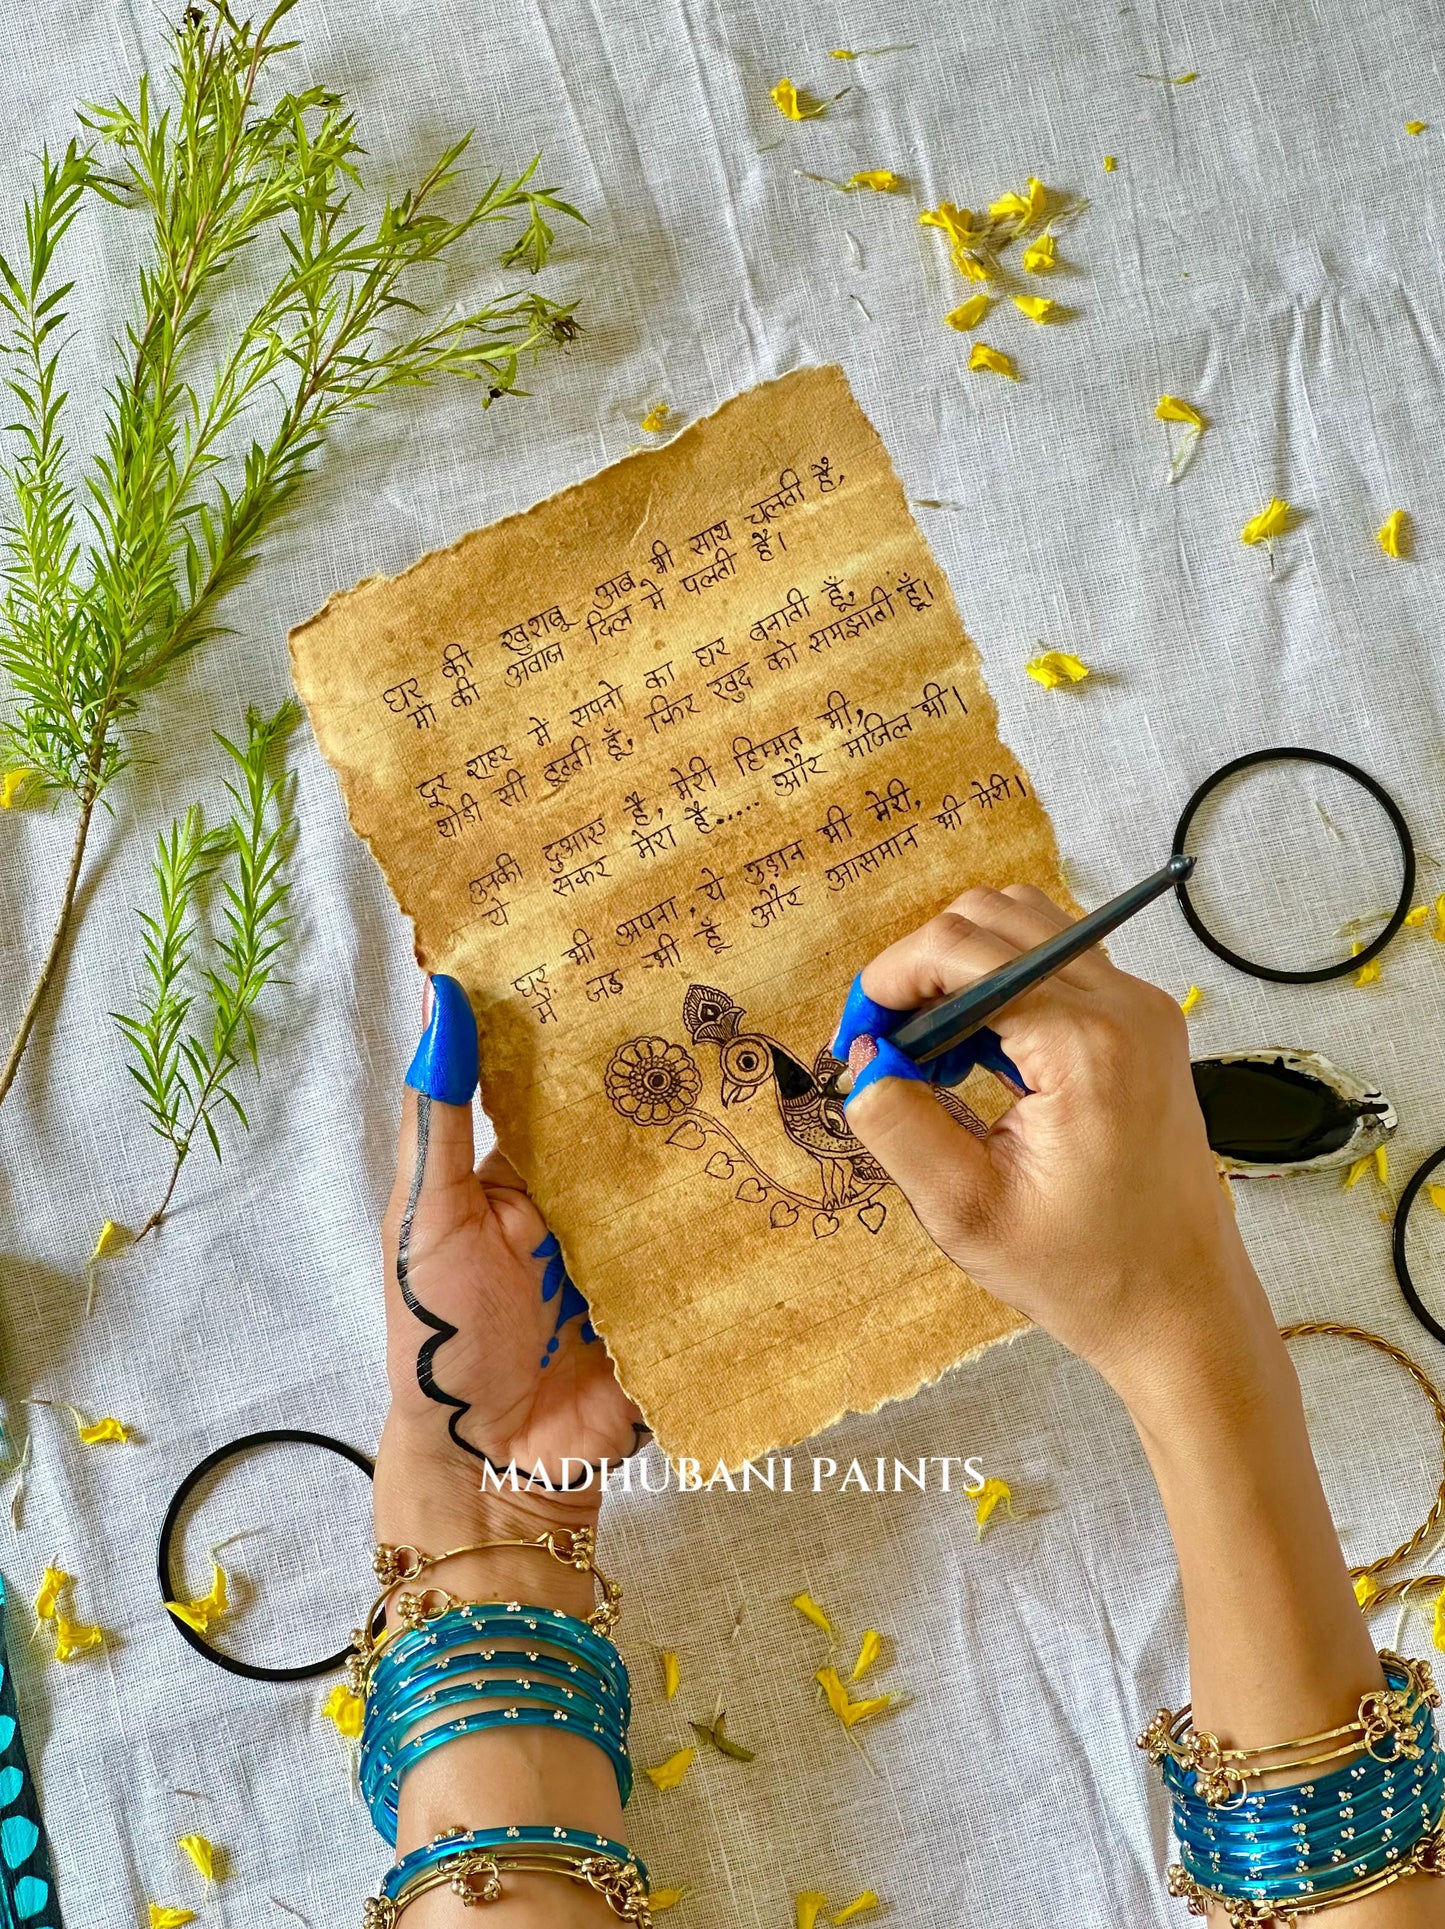 घर की खुशबू अब भी साथ चलती हैं,
माँ की अवाज दिल मे पलती हैं।
दूर शहर में सपनो का घर बनाती हूँ,
थोड़ी सी टूटती हूँ, फिर खुद को समझाती हूँ।
उनकी दुआएं है, मेरी हिम्मत भी,
ये सफर मेरा है..... और मंजिल भी।
घर भी अपना, ये उड़ान भी मेरी,
में जड़ भी हूँ और आसमान भी मेरी।
MADHUBANI PAINTS